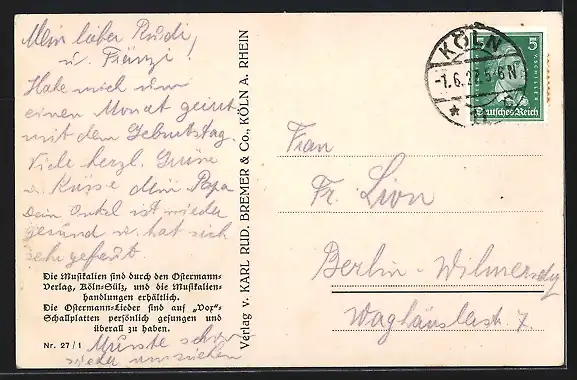 Mein lieber Rudi,
u. Fränzi!
Habe mich um
einen Monat geirrt
mit dem Geburtstag.
Viele herzl. Grüsse
u. Küsse dein Papa
Dein Onkel ist wieder
gesund u. hat sich
sehr gefreut.
Die Musikalien sind durch den Ostermann-
Verlag, Köln-Sülz, und die Musikalien-
handlungen erhältlich.
Die Ostermann-Lieder sind auf „Vox"-
Schallplatten persönlich gesungen und
überall zu haben.
Nr. 27/1
Musste schon
wieder umziehen
Verlag v. KARL RUD. BREMER & Co., KÖLN A. RHEIN
KÖLN
-1.6.27.5-6N
5
Deutsches Reich
Frau
Fr. Lion
Berlin-Wilmersdf
7